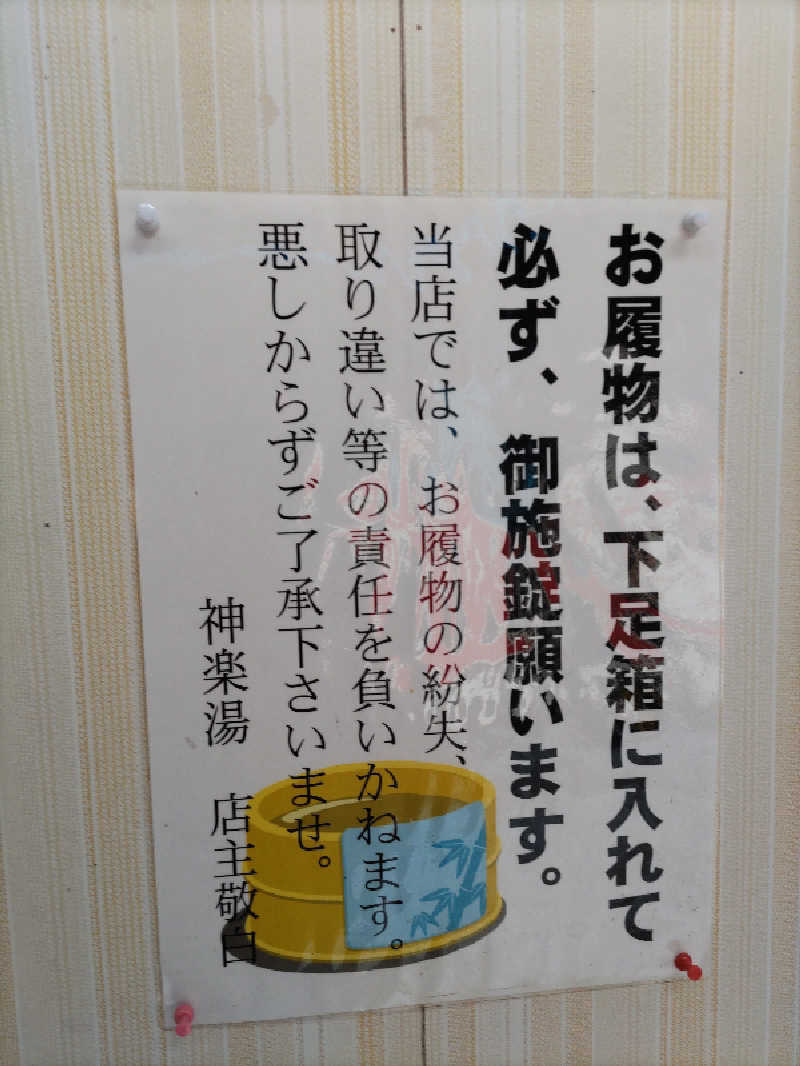 お履物は、下足箱に入れて
必ず、御施錠願います。
当店では、お履物の紛失、
取り違い等の責任を負いかねます。
悪しからずご了承下さいませ。
神楽湯 店主敬白